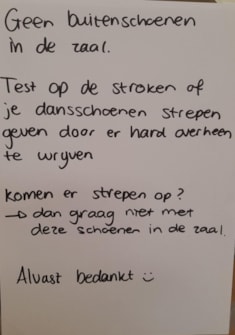 Geen buitenschoenen
in de zaal.
Test op de stroken of
je dansschoenen strepen
geven door er hard overheen
te wryven
komen er strepen op?
→ dan graag niet met
deze schoenen in de zaal.
Alvast bedankt ☺